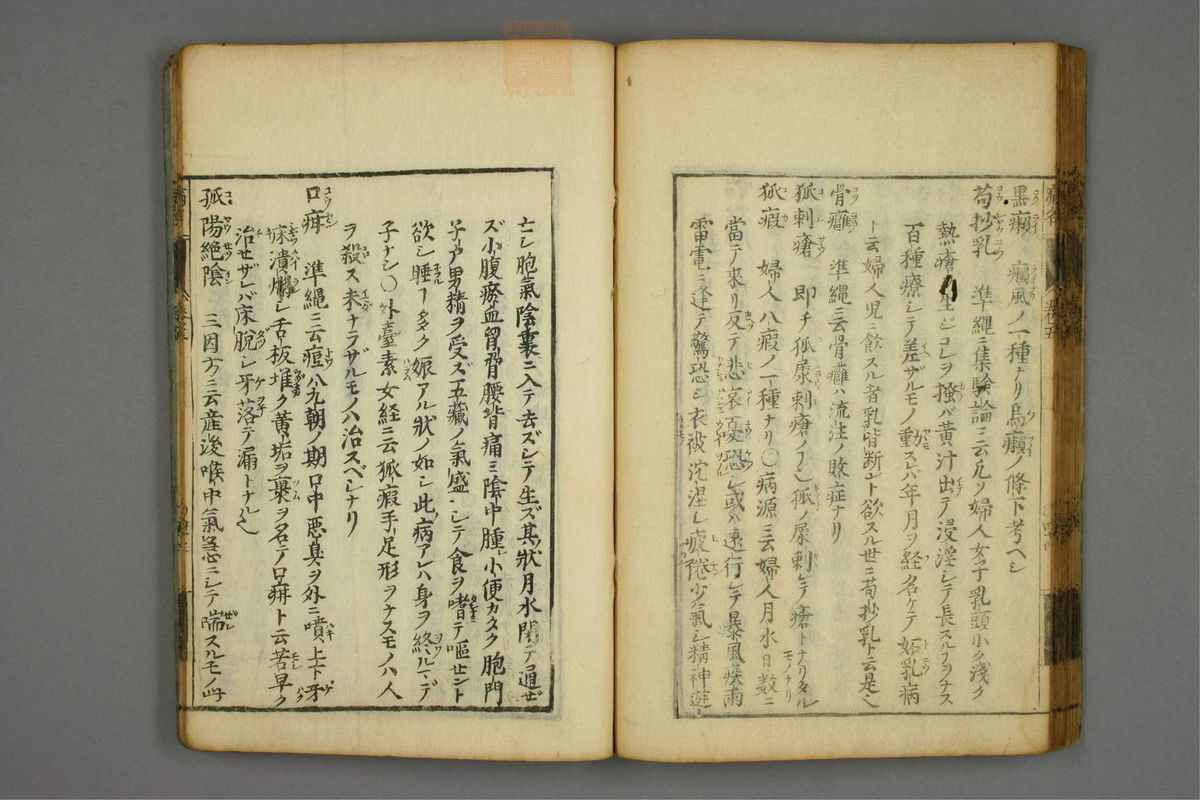 黒癩 癩風ノ一種ナリ烏癩ノ條下考ヘシ
苟抄乳 準縄ニ集驗論ニ云凡ソ婦人女子乳頭小ク淺ク
熱瘡生ジコレヲ搔バ黄汁出テ浸淫シテ長スルヿヲナス
百種療シテ差ザルモノ動スレバ年月ヲ経名ケテ妬乳病
ト云婦人児ニ飲スル者乳皆断ント欲スル世ニ苟抄乳ト云是也
骨癰 準縄ニ云骨癰ハ流注ノ敗症ナリ
狐刺瘡 即チ狐尿刺瘡ノヿ也狐ノ尿刺シテ瘡トナリタルモノナリ
狐瘕 婦人八瘕ノ一種ナリ〇病源ニ云婦人月水日数ニ
當テ來リ反テ悲哀憂恐シ或ハ遠行シテ暴風疾雨
雷電ニ逢テ驚恐シ衣被沈濕シ疲倦少氣シ精神遊
亡シ胞氣陰裏ニ入テ去ズシテ生ズ其状月水閉テ通ゼ
ズ小腹瘀血留滑腰背痛ミ陰中腫小便カタク胞門
子戸男精ヲ受ズ五藏ノ氣盛ニシテ食ヲ嗜テ嘔セント
欲シ睡ヿ多ク娠アル狀ノ如シ此病アレハ身ヲ終ルマデ
子ナシ〇外臺素女経ニ云狐瘕手足形ヲナスモノハ人
ヲ殺ス未ナラザルモノハ治スベシナリ
口疳 準縄ニ云痘八九朝ノ期口中悪臭ヲ外ニ噴上下牙
床潰爛シ舌板堆ク黄垢ヲ裹ヲ名テ口疳ト云若早ク
治セザレバ床脱シ牙落テ漏トナル也
孤陽絶陰 三因方ニ云産後喉中氣急ニシテ喘スルモノ此